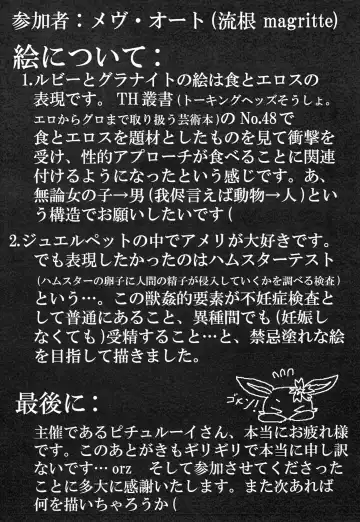 参加者：メヴ・オート(流根 magritte)
絵について：
1.ルビーとグラナイトの絵は食とエロスの
表現です。 TH叢書(トーキングヘッズそうしょ。
エロからグロまで取り扱う芸術本)の No.48で
食とエロスを題材としたものを見て衝撃を
受け、性的アプローチが食べることに関連
付けるようになったという感じです。あ、
無論女の子→男(我侭言えば動物→人)とい
う構造でお願いしたいです(
2.ジュエルペットの中でアメリが大好きです。
でも表現したかったのはハムスターテスト
(ハムスターの卵子に人間の精子が侵入していくかを調べる検査)
という…。この獣姦的要素が不妊症検査と
して普通にあること、異種間でも(妊娠し
なくても)受精すること…と、禁忌塗れな絵
を目指して描きました。
ゴメン!
最後に：
主催であるピチュルーイさん、本当にお疲れ様
です。このあとがきもギリギリで本当に申し訳
ないです… orz そして参加させてくださった
ことに多大に感謝いたします。また次あれば
何を描いちゃろうか(